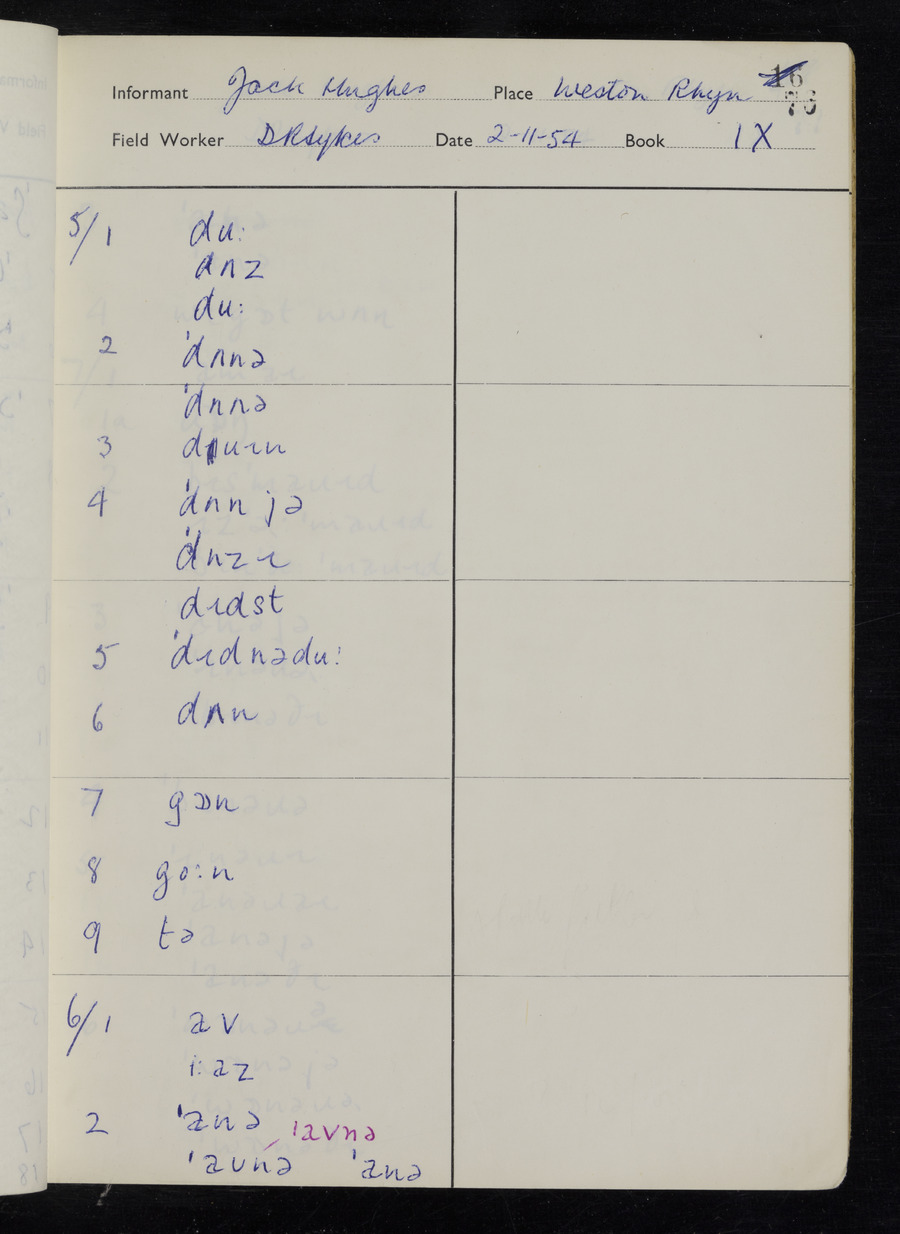 Informant Jack Hughes Place Weston Rhyn 76
Field Worker D R Sykes Date 2-11-54 Book IX
5/1 du:
dʌz
du:
2 ˈdʌnə
ˈdʌnə
3 dɪuɪn
4 ˈdʌn jə
ˈdʌzɪ
dɪdst
5 ˈdɪdnədu:
6 dʌn
7 gɒn
8 go:n
9 tə
6/1 av
i: az
2 ˈanə ˈavnə
ˈavnə ˈanə